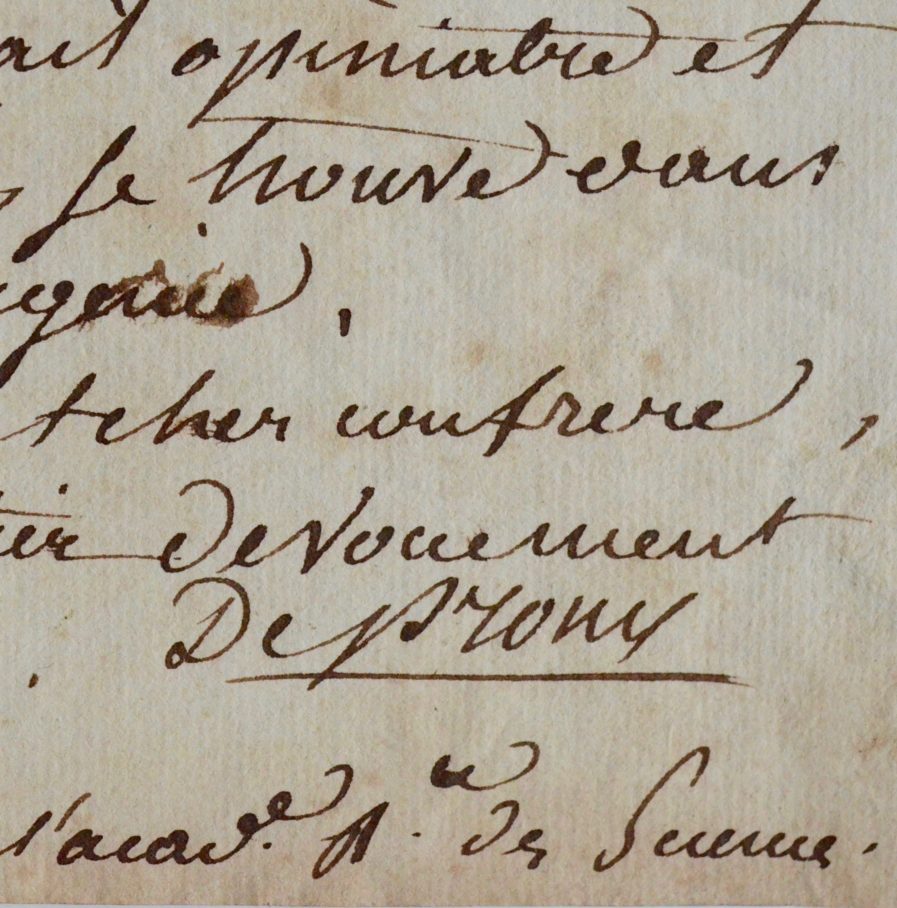 ait opiniatre et
se trouve dans
genie.
t cher confrere,
devouement
De Prony
l'acad.e R.le des Sciences.